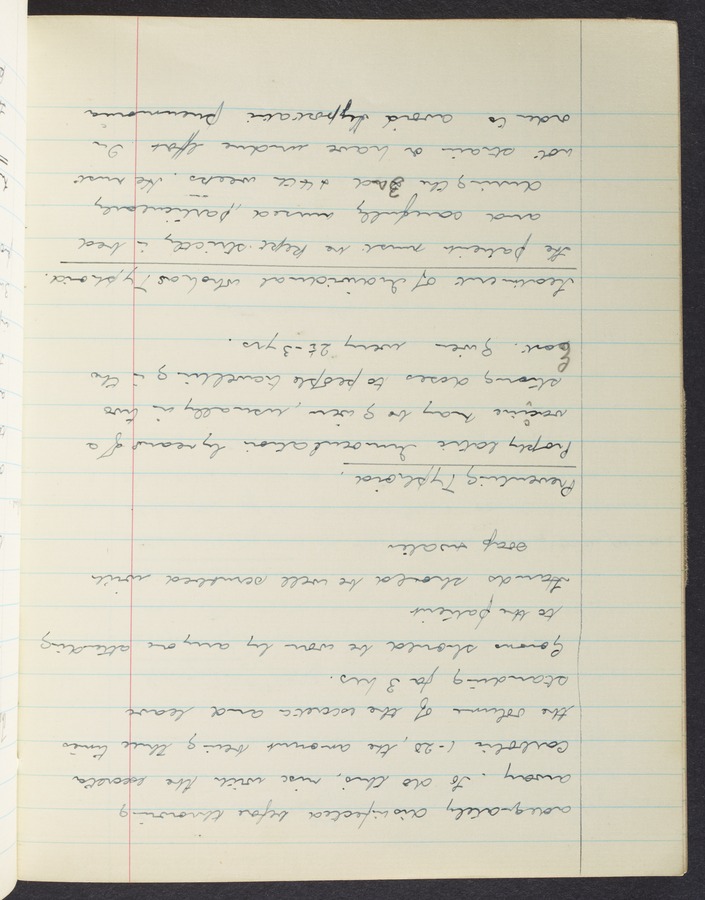 adequately disinfected before throwing
away. To do this, mix with the excreta
Carbolic 1-20, the amount being three times
the volume of the excreta and leave
standing for 3 hrs.
Gowns should be worn by anyone attending
to the patient
Hands should be well scrubbed with
soap & water
Preventing Typhoid.
Prophylatic Innoculation by means of a
vaccine may be given, usually in two
strong doses to people travelling in the
East. Given every 2½-3 yrs.
Treatment of Individual who has Typhoid.
the patient must be kept strictly in bed
and carefully nursed, particularly
during the 3rd & 4th weeks. He must
not strain or have undue effort. In
order to avoid Hypostatic Pneumonia